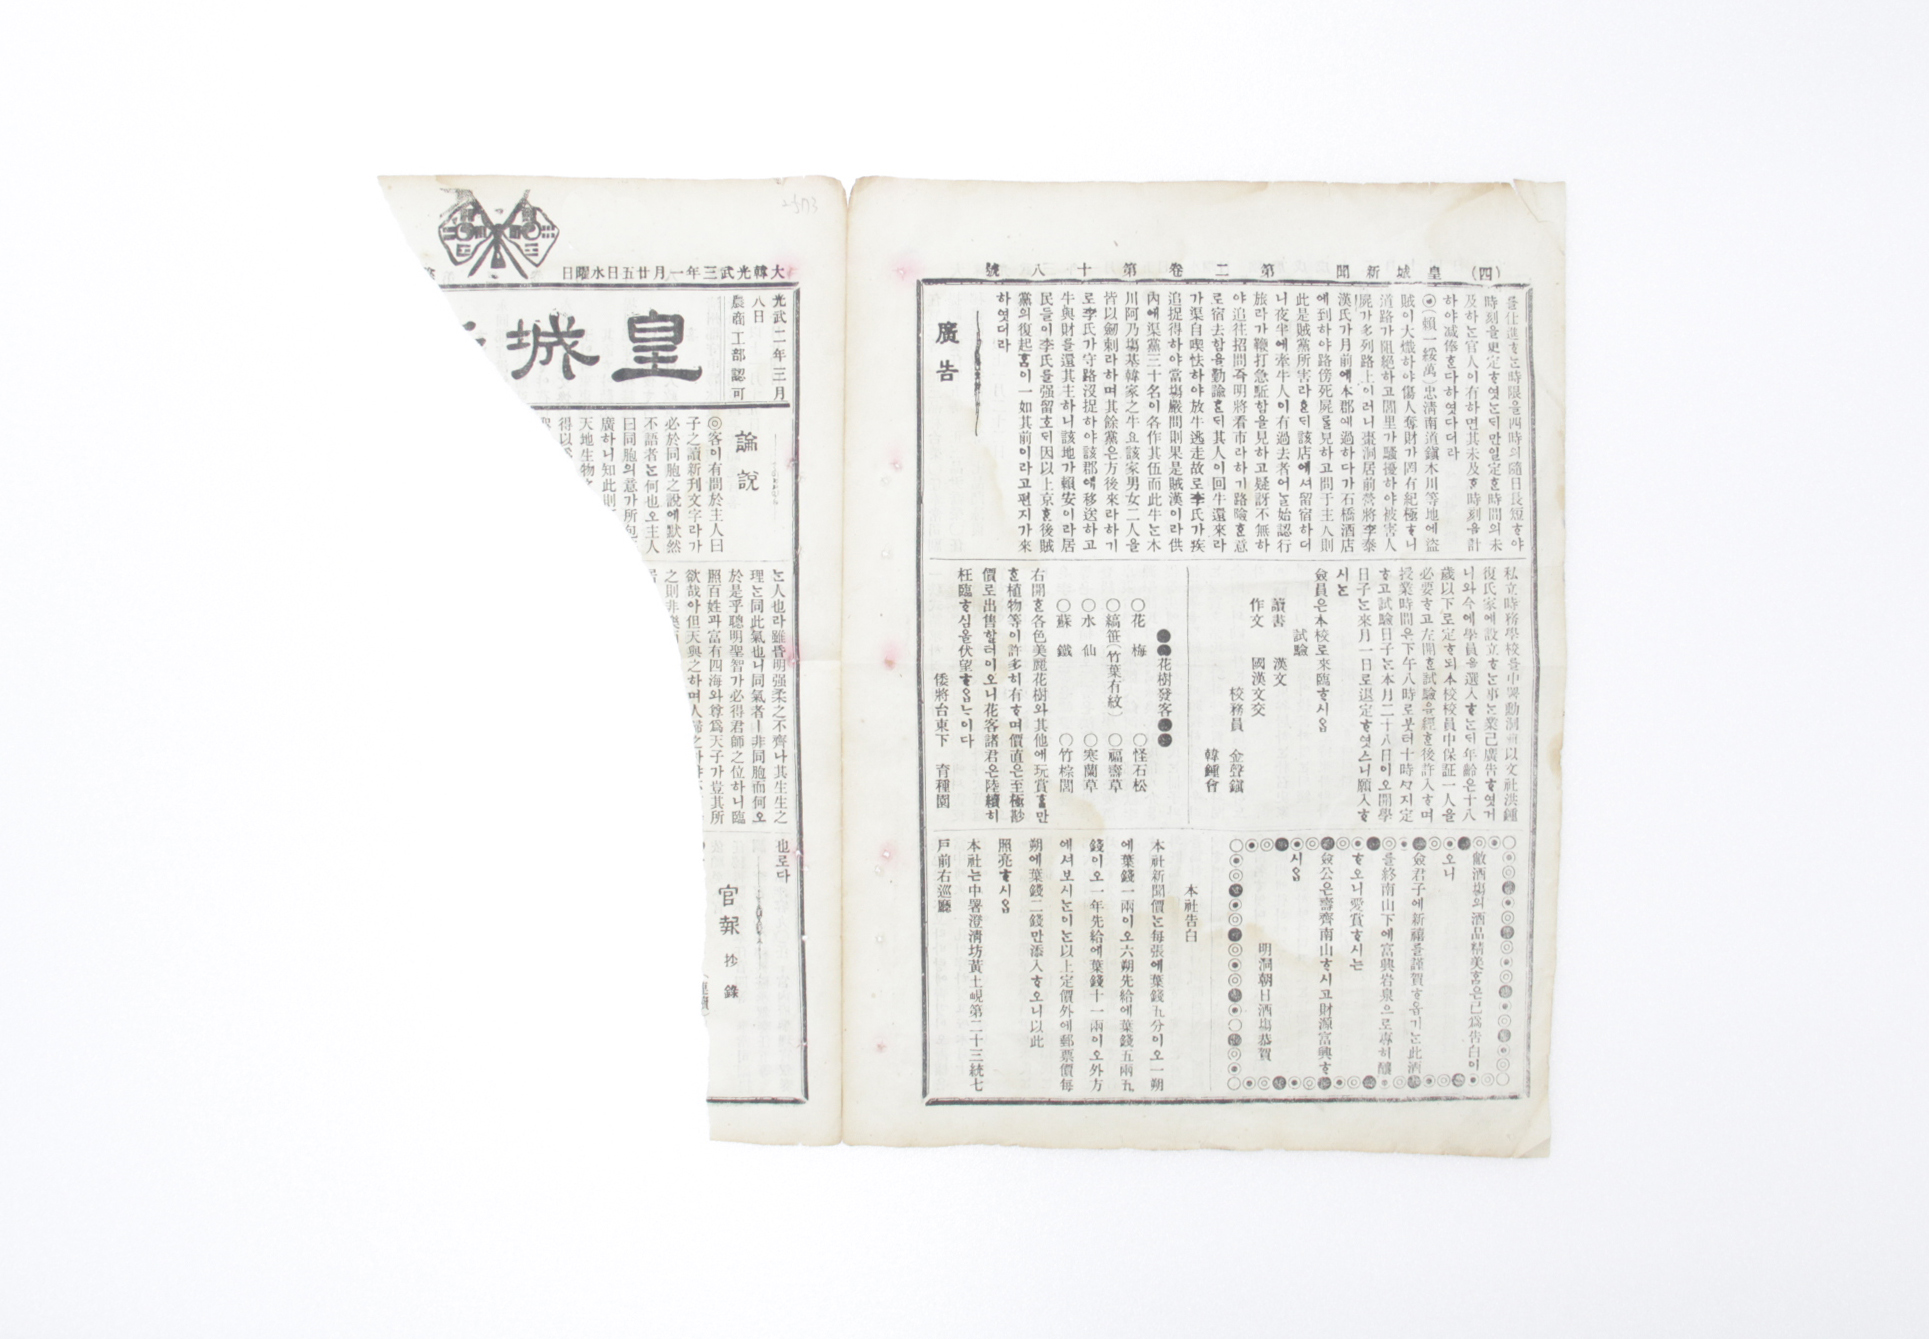 大韓光武三年一月廿五日水曜日
光武二年三月
八日
農商工部認可
皇城
論說
◎客이有問於主人曰
子之讀新刊文字라가
必於同胞之說에默然
不語者는何也오主人
曰同胞의意가所包
廣하니知此則
天地生物
得以
는人也라雖昏明强柔之不齊나其生生之
理는同此氣也니同氣者ㅣ非同胞而何오
於是乎聰明聖智가必得君師之位하니臨
照百姓과富有四海와尊爲天子가豈其所
欲哉아但天與之하며人歸之
之則非
也로다
官報抄錄
(四) 皇城新聞 第二卷第十八號
를仕進ᄒᆞ는時限을四時의隨日長短ᄒᆞ야
時刻을更定ᄒᆞ엿는ᄃᆡ만일定ᄒᆞᆫ時間의未
及하는官人이有하면其未及ᄒᆞᆫ時刻을計
하야减俸ᄒᆞᆫ다하엿다더라
◉(賴一綏萬)忠淸南道鎭木川等地에盜
賊이大熾하야傷人奪財가罔有紀極ᄒᆞ니
道路가阻絕하고閭里가騷擾하야被害人
屍가多列路上이러니棗洞居前營將李泰
漢氏가月前에本郡에過하다가石橋酒店
에到하야路傍死屍를見하고問于主人則
此是賊黨所害라ᄒᆞᄂᆞᆫᄃᆡ該店에셔留宿하더
니夜半에牽牛人이有過去者어늘始認行
旅라가鞭打急駈함을見하고疑訝不無하
야追往招問즉明將看市라하기路險ᄒᆞᆫ意
로宿去함을勤諭ᄒᆞᆫᄃᆡ其人이回牛還來라
가渠自喫怯하야放牛逃走故로李氏가疾
追捉得하야當塲嚴問則果是賊漢이라供
內에渠黨三十名이各作其伍而此牛는木
川阿乃塲基韓家之牛요該家男女二人을
皆以劒刺라하며其餘黨은方後來라하기
로李氏가守路沒捉하야該郡에移送하고
牛與財를還其主하니該地가賴安이라居
民들이李氏를强留호ᄃᆡ因以上京ᄒᆞᆫ後賊
黨의復起홈이一如其前이라고편지가來
하엿더라
廣告
私立時務學校를中署勳洞
復氏家에設立ᄒᆞ는事는業己廣告ᄒᆞ엿거
니와今에學員을選入ᄒᆞ는ᄃᆡ年齡은十八
歲以下로定ᄒᆞ되本校校員中保証一人을
必要ᄒᆞ고左開ᄒᆞᆫ試驗을經ᄒᆞᆫ後許入ᄒᆞ며
授業時間은下午八時로붓터十時ᄭᆞ지定
ᄒᆞ고試驗日子는本月二十八日이오開學
日子는來月一日로退定ᄒᆞ엿스니願入ᄒᆞ
시는
僉員은本校로來臨ᄒᆞ시옵
試驗
讀書 漢文
作文 國漢文交
校務員 金聲鎭
韓鍾會
●●花樹發客●●
○花梅 ○怪石松
○縞笹(竹葉有紋) ○福壽草
○水仙 ○寒蘭草
○蘇鐵 ○竹棕閭
右開ᄒᆞᆫ各色美麗花樹와其他에玩賞ᄒᆞᆯ만
ᄒᆞᆫ植物等이許多히有ᄒᆞ며價直은至極尠
價로出售할터이오니花客諸君은陸續히
枉臨ᄒᆞ심을伏望ᄒᆞ옵ᄂᆞ이다
倭將台東下 育種園
敝酒塲의酒品精美홈은已爲告白이
오니
僉君子에新禧를謹賀ᄒᆞ옵기는此酒
를終南山下에富興岩泉으로專히釀
ᄒᆞ오니愛賞ᄒᆞ시는
僉公은壽齊南山ᄒᆞ시고財源富興ᄒᆞ
시옵
明洞朝日酒塲恭賀
本社告白
本社新聞價는每張에葉錢五分이오一朔
에葉錢一兩이오六朔先給에葉錢五兩五
錢이오一年先給에葉錢十一兩이오外方
에셔보시는이는以上定價外에郵票價每
朔에葉錢二錢만添入ᄒᆞ오니以此
照亮ᄒᆞ시옵
本社는中署澄淸坊黃土峴第二十三統七
戶前右巡廳